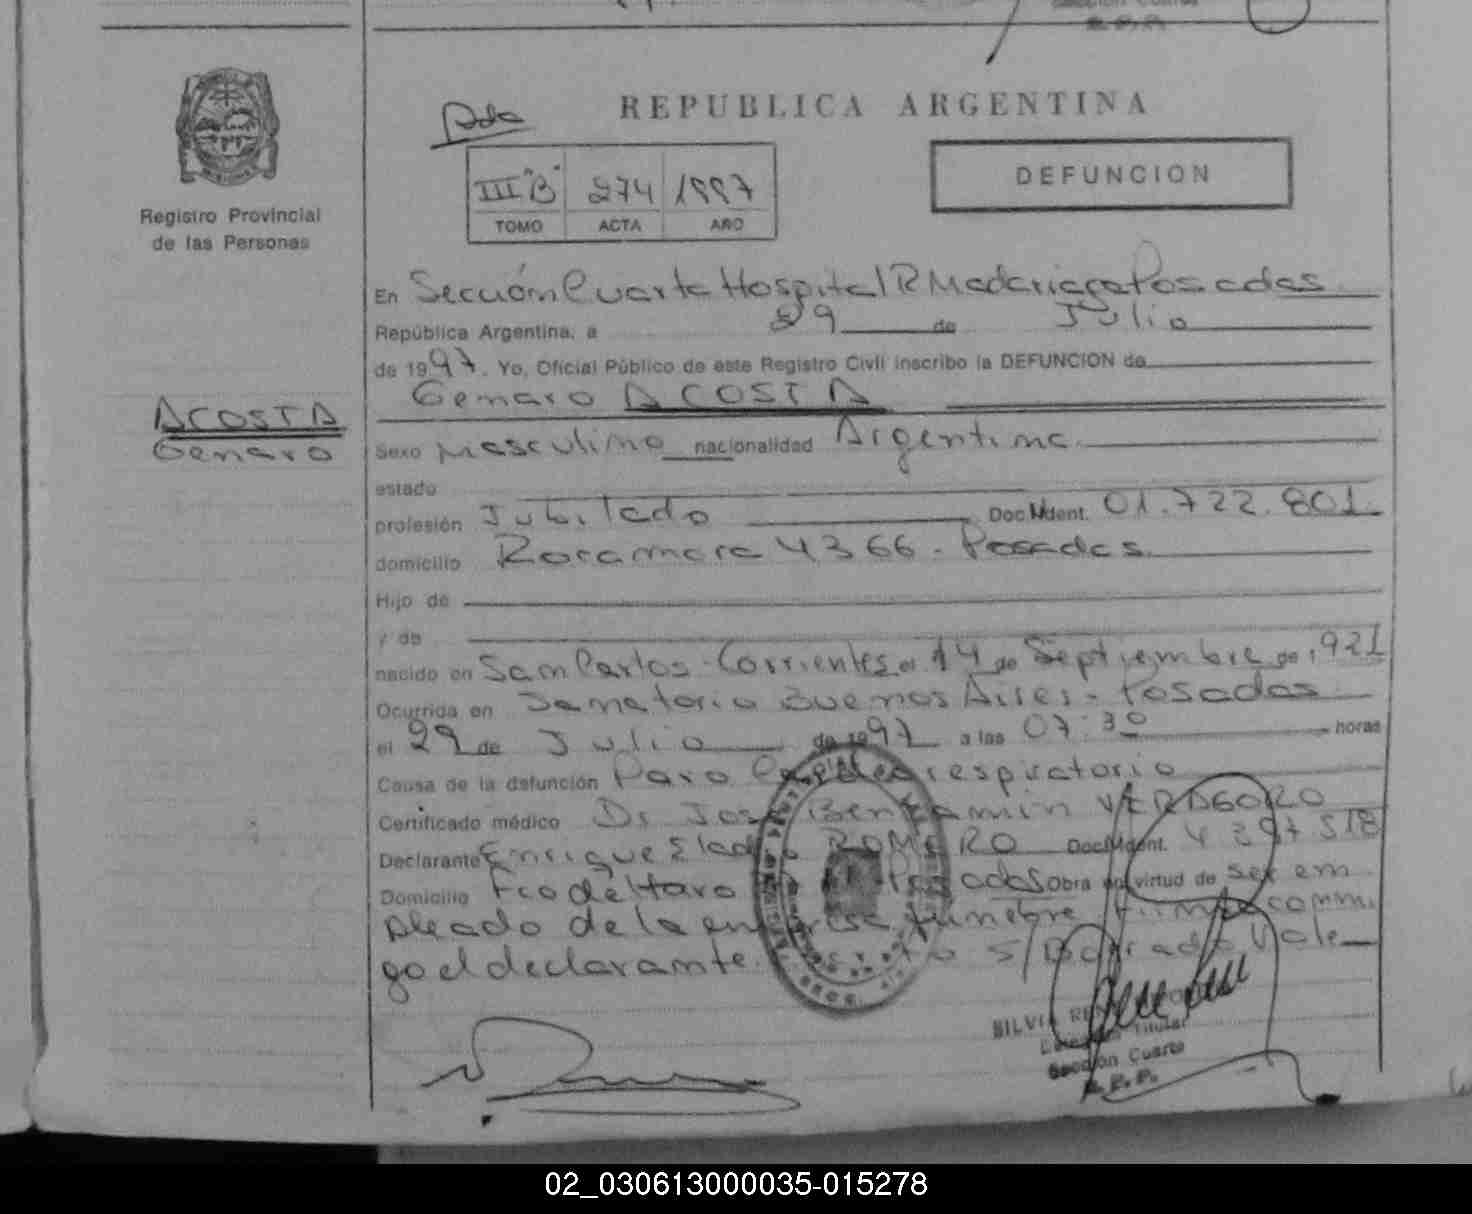 REPUBLICA ARGENTINA
Registro Provincial
de las Personas
III "B" 274 1997
TOMO ACTA AÑO
DEFUNCION
En Sección Cuarta Hospital R Madariaga Posadas
República Argentina, a 29 de Julio
de 1997. Yo, Oficial Público de este Registro Civil inscribo la DEFUNCION de
Genaro ACOSTA
ACOSTA
Genaro
Sexo Masculino nacionalidad Argentina
estado
profesión Jubilado Doc. Ident. 01.722.801.
domicilio Rocamora 4366 - Posadas
Hijo de
y de
nacido en San Carlos - Corrientes el 14 de Septiembre de 1921
Ocurrida en Sanatorio Buenos Aires - Posadas
el 29 de Julio de 1997 a las 07:30 horas
Causa de la defunción Paro Cardiorespiratorio
Certificado médico Dr José Benjamin
Declarante Enrique Eladio ROMERO Doc. Ident. 4 397 518
Domicilio Fco de Haro Posadas Obra en virtud de ser em
pleado de la empresa fúnebre firma conmi
go el declarante S/ Borrado Vale
SILVIA
Titular
Sección Cuarta
R.P.P.
02_030613000035-015278